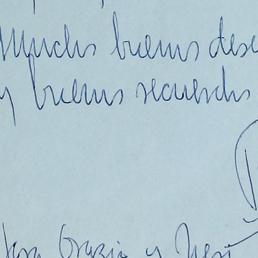 Muchos buenos dese
y buenos recuerdos
Grazia y